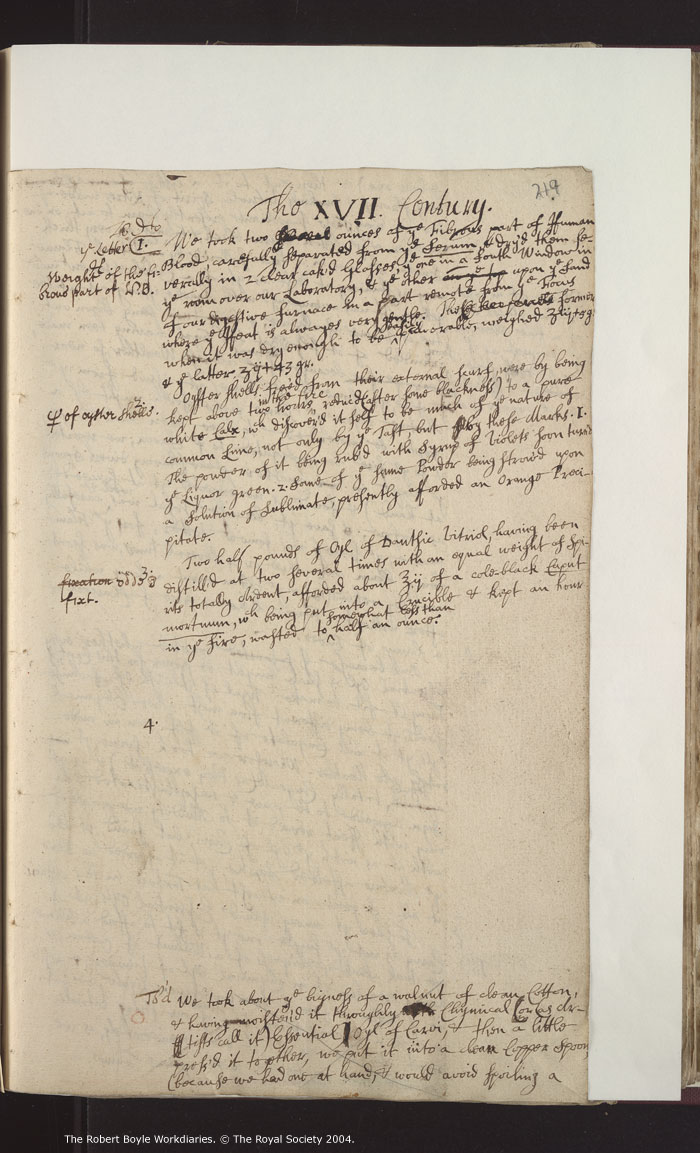 219
The XVII. Century.
Tr'd to
ye Letter I.
Weight of the fi-
brous part of M.B.
We took two ounces of ye Fibrous part of Human
Blood carefully separated from ye Serum, & dry'd them se-
verally in 2 clear Glasses, ye one in a South Window in
ye room over our Laboratory, & ye other upon ye sand
of our digestive furnace in a part remote from ye Focus
where ye Heat is alwayes very gentle. The former
when it was dry enough to be easily weighed
& ye latter gr.
of oyster shells.
Oyster shells freed from their external scurf, were by being
kept above two hours in the fire reduc'd (after some blackness) to a pure
white Calx, wh discover'd it self to be much of ye nature of
common Lime, not only by ye Tast but by these Marks. 1.
The powder of it being rub'd with Syrup of Violets soon turn'd
ye Liquor green. 2. Some of ye same Powder being strow'd upon
a solution of Sublimate, presently afforded an Orange Preci-
pitate.
fixation
fixt.
Two half pounds of Oyl of Danthic Vitriol, having been
distill'd at two several times with an equal weight of Spi-
rits totally ardent, afforded about Zij of a cole-black Caput
mortuum, wh being put into a Crucible & kept an hour
in ye fire, wasted to somewhat less than half an ounce.
4.
Ts'd
We took about ye bigness of a walnut of clean Cotton,
& having moisten'd it throughly Chymical (or as Ar-
tists call it) Essential Oyl of Carvi, & then a little
press'd it together, we put it into a clean Copper spoon
(because we had one at hand, & would avoid spoiling a
The Robert Boyle Workdiaries. © The Royal Society 2004.